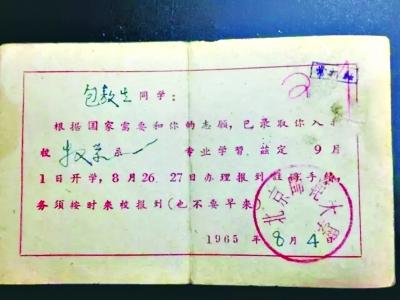 包敖生同学：
根据国家需要和你的志愿，已录取你入我
校 系一 专业学習，兹定 9月
1日开学，8月26、27日办理报到註冊手续，
务须按时来校报到（也不要早来）。
1965年8月4日
北京师范大学